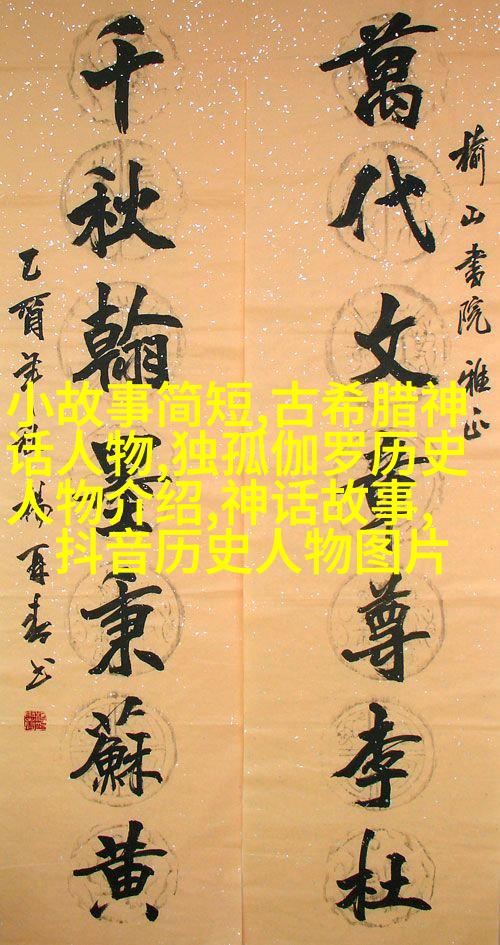 榆山書院雅正
萬代文章尊李杜
千秋翰墨秉蘇黄
乙酉 秋 楊再春书
小故事简短,古希腊神
话人物,独孤伽罗历史
人物介绍,神话故事,
抖音历史人物图片